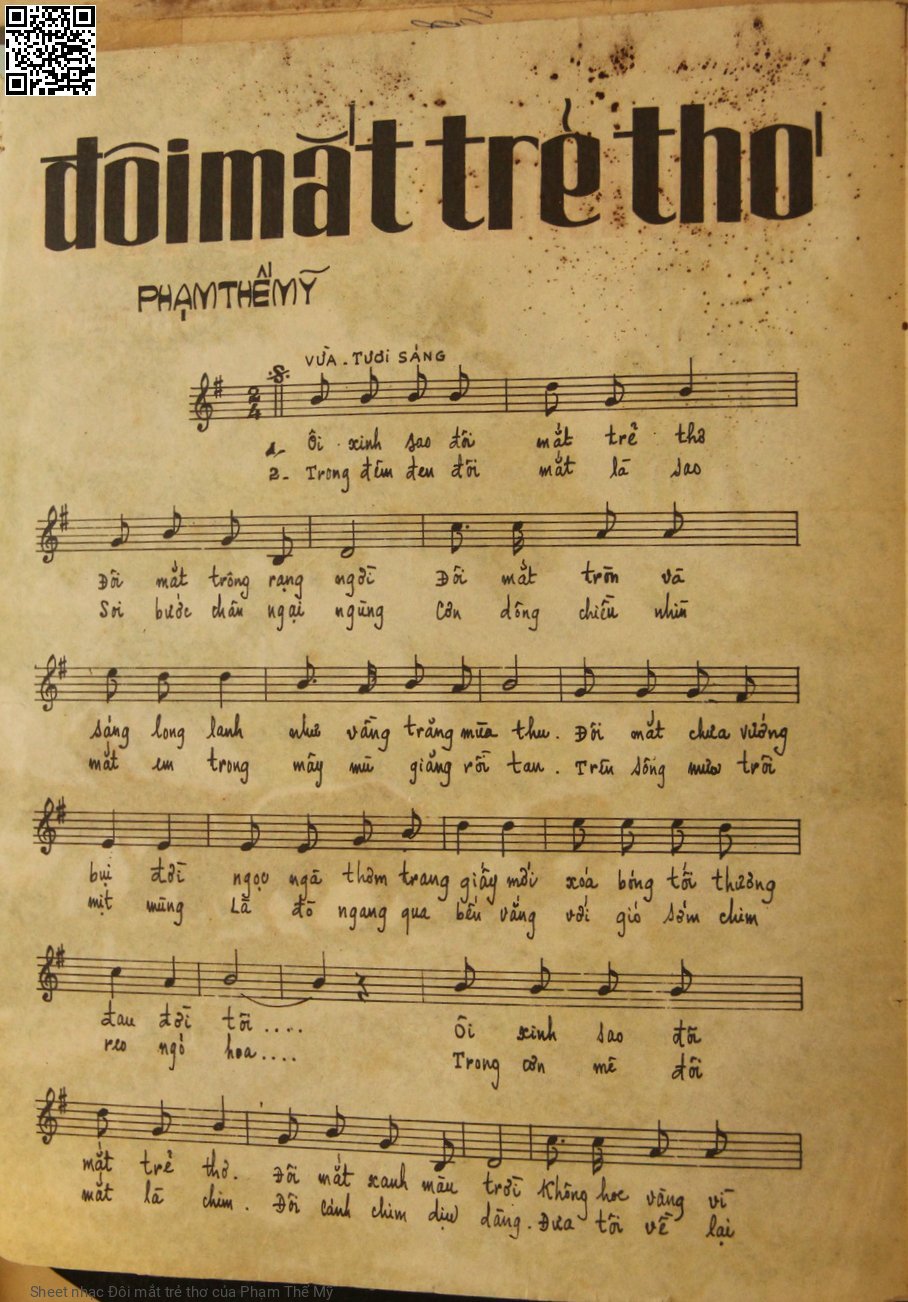 đôi mắt trẻ thơ
PHẠM THẾ MỸ
VỪA - TƯƠI SÁNG
2
4
1- Ôi xinh sao đôi mắt trẻ thơ
2- Trong đêm đen đôi mắt là sao
Đôi mắt trông rạng ngời Đôi mắt tròn và
Soi bước chân ngại ngùng Cơn dông chiều nhìn
sáng long lanh như vầng trăng mùa thu. Đôi mắt chưa vướng
mắt em trong mây mù giăng rồi tan. Trên sông mưa trôi
bụi đời ngọc ngà thơm trang giấy mới xóa bóng tối thương
mịt mùng Là đò ngang qua bến vắng với gió sớm chim
đau đời tôi....
reo ngỏ hoa....
Ôi xinh sao đôi
Trong cơn mê đôi
mắt trẻ thơ. Đôi mắt xanh màu trời Không hoe vàng vì
mắt là chim. Đôi cánh chim dịu dàng. Đưa tôi về lại
Sheet nhạc Đôi mắt trẻ thơ của Phạm Thế Mỹ